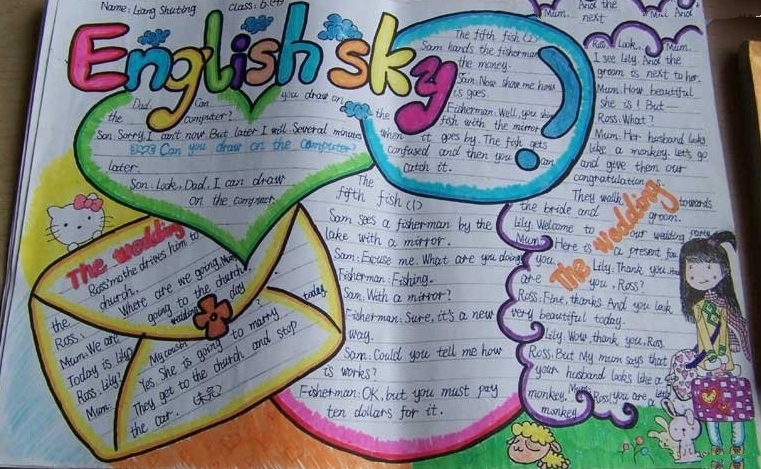 Name: Liang Shuting
Class: 6.
English sky
Dad. Can you draw on
the computer?
Son: Sorry, I can't now. But later I will. Several minutes
Can you draw on the computer?
later.
Son: Look, Dad. I can draw
on the computer.
The fifth fish (2)
Sam hands the fisherman
the money.
Sam: Now show me how
is goes.
Fisherman: Well, you shine
the fish with the mirror
when it goes by. The fish gets
confused and then you can
catch it.
The
fifth fish (1)
Sam sees a fisherman by the
lake with a mirror.
Sam: Excuse me. What are you doing
Fisherman: Fishing.
Sam: With a mirror?
Fisherman: Sure, it's a new
way.
Sam: Could you tell me how
is works?
Fisherman: OK, but you must pay
ten dollars for it.
The wedding
Ross mother drives him to
the church.
Ross: Where are we going,
Mum: We are going to the church.
Today is Lily wedding day
Ross: Lily?
Mum: My cousin
Yes. She is going to marry today.
They get to the church and stop
the car.
Mum. And the
next
Mum. And
Ross: Look, Mum.
I see Lily. And the
groom is next to her.
Mum: How beautiful
she is! But—
Ross: What?
Mum: Her husband looks
like a monkey. let's go
and give them our
congratulations.
They walk towards
the bride and groom.
Lily: Welcome to our wedding party
Mum: Here is a present for
you.
Lily: Thank you. How
are you, Ross?
Ross: Fine, thanks. And you look
very beautiful today.
Lily: Wow, thank you, Ross.
Ross: But My mum says that
your husband looks like a
monkey.
Mum: Ross! you are little
monkey.
The wedding